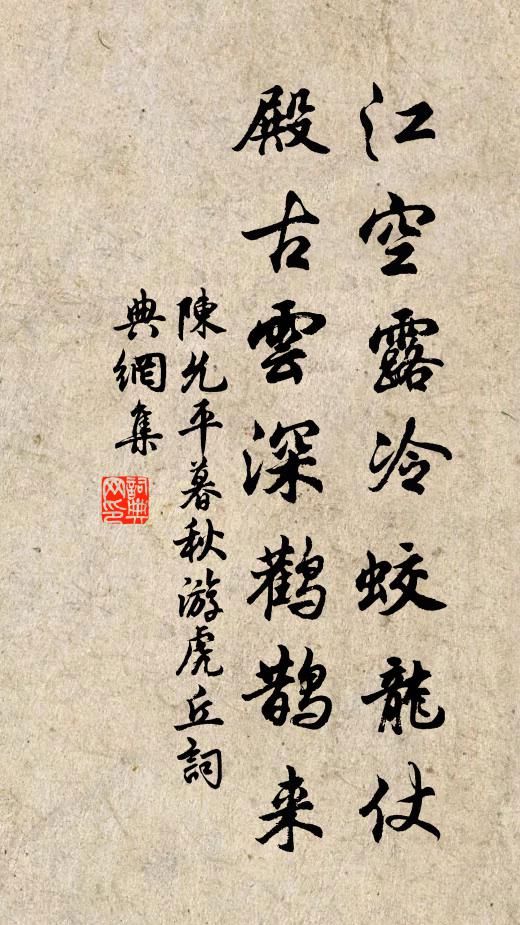 江空露冷蛟龍仗
殿古雲深鸛鵲来
陳允平暮秋游虎丘詞
典網集
詞典网印